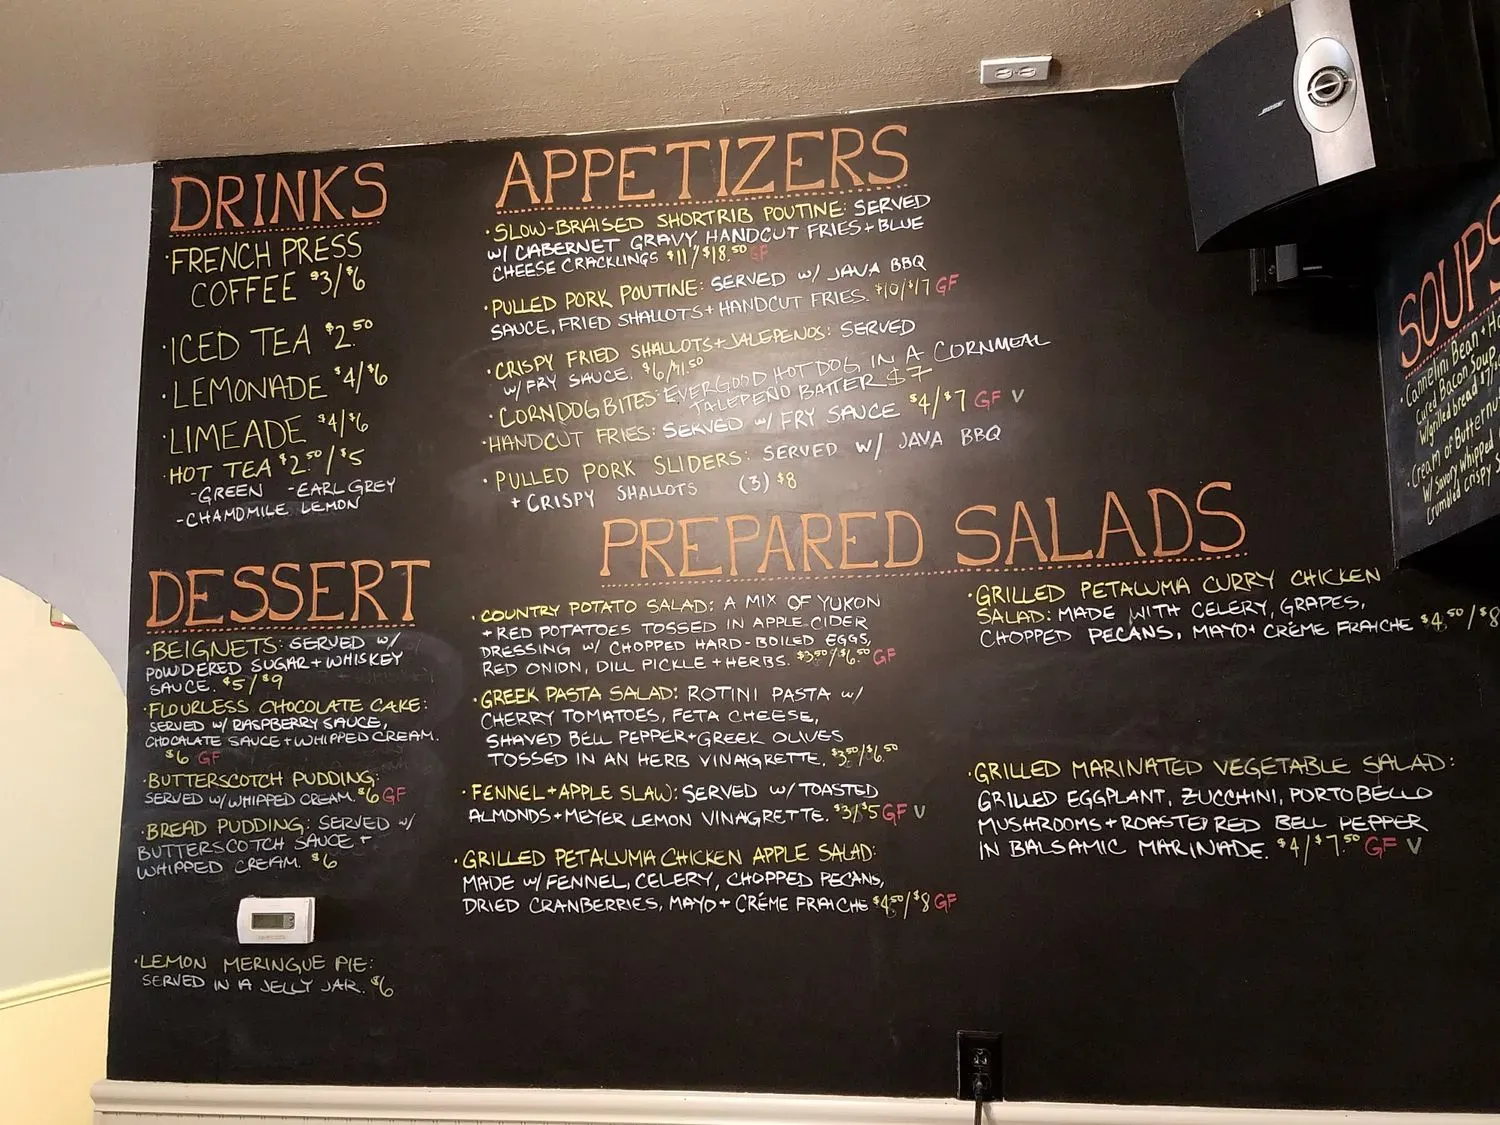 DRINKS
·FRENCH PRESS
COFFEE $3/$6
·ICED TEA $2.50
·LEMONIADE $4/$6
·LIMEADE $4/$6
·HOT TEA $2.50/$5
-GREEN -EARL GREY
-CHAMOMILE LEMON
DESSERT
·BEIGNETS: SERVED W/
POWDERED SUGAR + WHISKEY
SAUCE. $5/$9
·FLOURLESS CHOCOLATE CAKE:
SERVED W/ RASPBERRY SAUCE,
CHOCALATE SAUCE + WHIPPED CREAM.
$6 GF
·BUTTERSCOTCH PUDDING:
SERVED W/ WHIPPED CREAM. $6 GF
·BREAD PUDDING: SERVED W/
BUTTERSCOTCH SAUCE +
WHIPPED CREAM. $6
·LEMON MERINGUE PIE:
SERVED IN A JELLY JAR. $6
APPETIZERS
·SLOW-BRAISED SHORTRIB POUTINE: SERVED
W/ CABERNET GRAVY, HANDCUT FRIES + BLUE
CHEESE CRACKLINGS $11/$18.50 GF
·PULLED PORK POUTINE: SERVED W/ JAVA BBQ
SAUCE, FRIED SHALLOTS + HANDCUT FRIES. $10/$17 GF
·CRISPY FRIED SHALLOTS + JALEPENOS: SERVED
W/ FRY SAUCE.
·CORNDOG BITES: EVERGOOD HOT DOG IN A CORNMEAL
JALEPEÑO BATTER $7
·HANDCUT FRIES: SERVED W/ FRY SAUCE $4/$7 GF V
·PULLED PORK SLIDERS: SERVED W/ JAVA BBQ
+ CRISPY SHALLOTS (3) $8
PREPARED SALADS
·COUNTRY POTATO SALAD: A MIX OF YUKON
+ RED POTATOES TOSSED IN APPLE CIDER
DRESSING W/ CHOPPED HARD-BOILED EGGS,
RED ONION, DILL PICKLE + HERBS. $3.50/$6.50 GF
·GREEK PASTA SALAD: ROTINI PASTA W/
CHERRY TOMATOES, FETA CHEESE,
SHAVED BELL PEPPER + GREEK OLIVES
TOSSED IN AN HERB VINAIGRETTE. $3.50/$6.50
·FENNEL + APPLE SLAW: SERVED W/ TOASTED
ALMONDS + MEYER LEMON VINAIGRETTE. $3/$5 GF V
·GRILLED PETALUMA CHICKEN APPLE SALAD:
MADE W/ FENNEL, CELERY, CHOPPED PECANS,
DRIED CRANBERRIES, MAYO + CRÉME FRAICHE $4.50/$8 GF
·GRILLED PETALUMA CURRY CHICKEN
SALAD: MADE WITH CELERY, GRAPES,
CHOPPED PECANS, MAYO + CRÉME FRAICHE $4.50/$8
·GRILLED MARINATED VEGETABLE SALAD:
GRILLED EGGPLANT, ZUCCHINI, PORTOBELLO
MUSHROOMS + ROASTED RED BELL PEPPER
IN BALSAMIC MARINADE. $4/$7.50 GF V
SOUPS
·Cannelini Bean + H
Cured Bacon Soup
W/ grilled bread
·Cream of Butternut
W/ Savory whipped
Crumbled crispy
BOSE